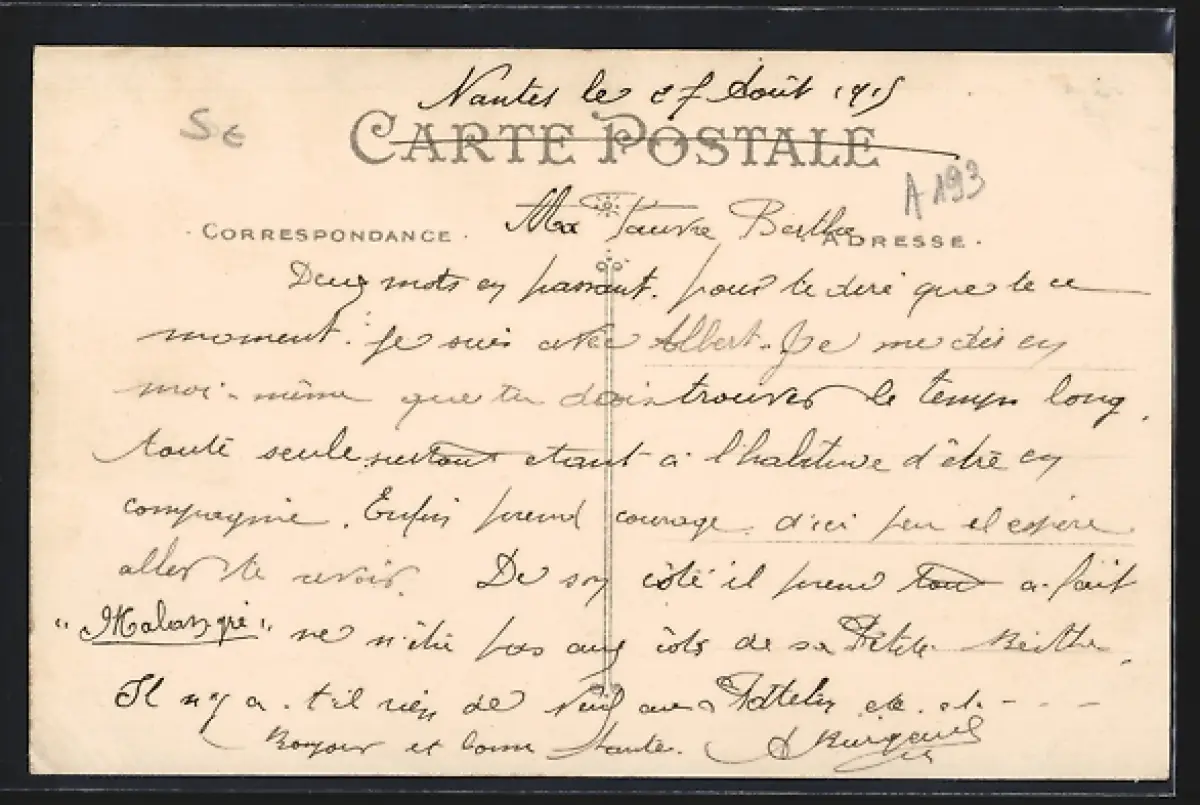 Nantes le 27 Août 1915
5€
CARTE POSTALE
A 193
Ma Pauvre Berthe
· CORRESPONDANCE ·
ADRESSE ·
Deux mots en passant. pour te dire que le ce
moment. je suis avec Albert. Je me dis en
moi-même que tu dois trouver le temps long,
toute seule surtout etant a l'habitude d'être en
compagnie. Enfin prend courage. d'ici peu il espère
aller te revoir. De son côté il prend tout a fait
ne pas aux côté de sa Petite Berthe.
Il n'y a. t'il rien de aux etc. et. - - -
Bonjour et bonne Santé.